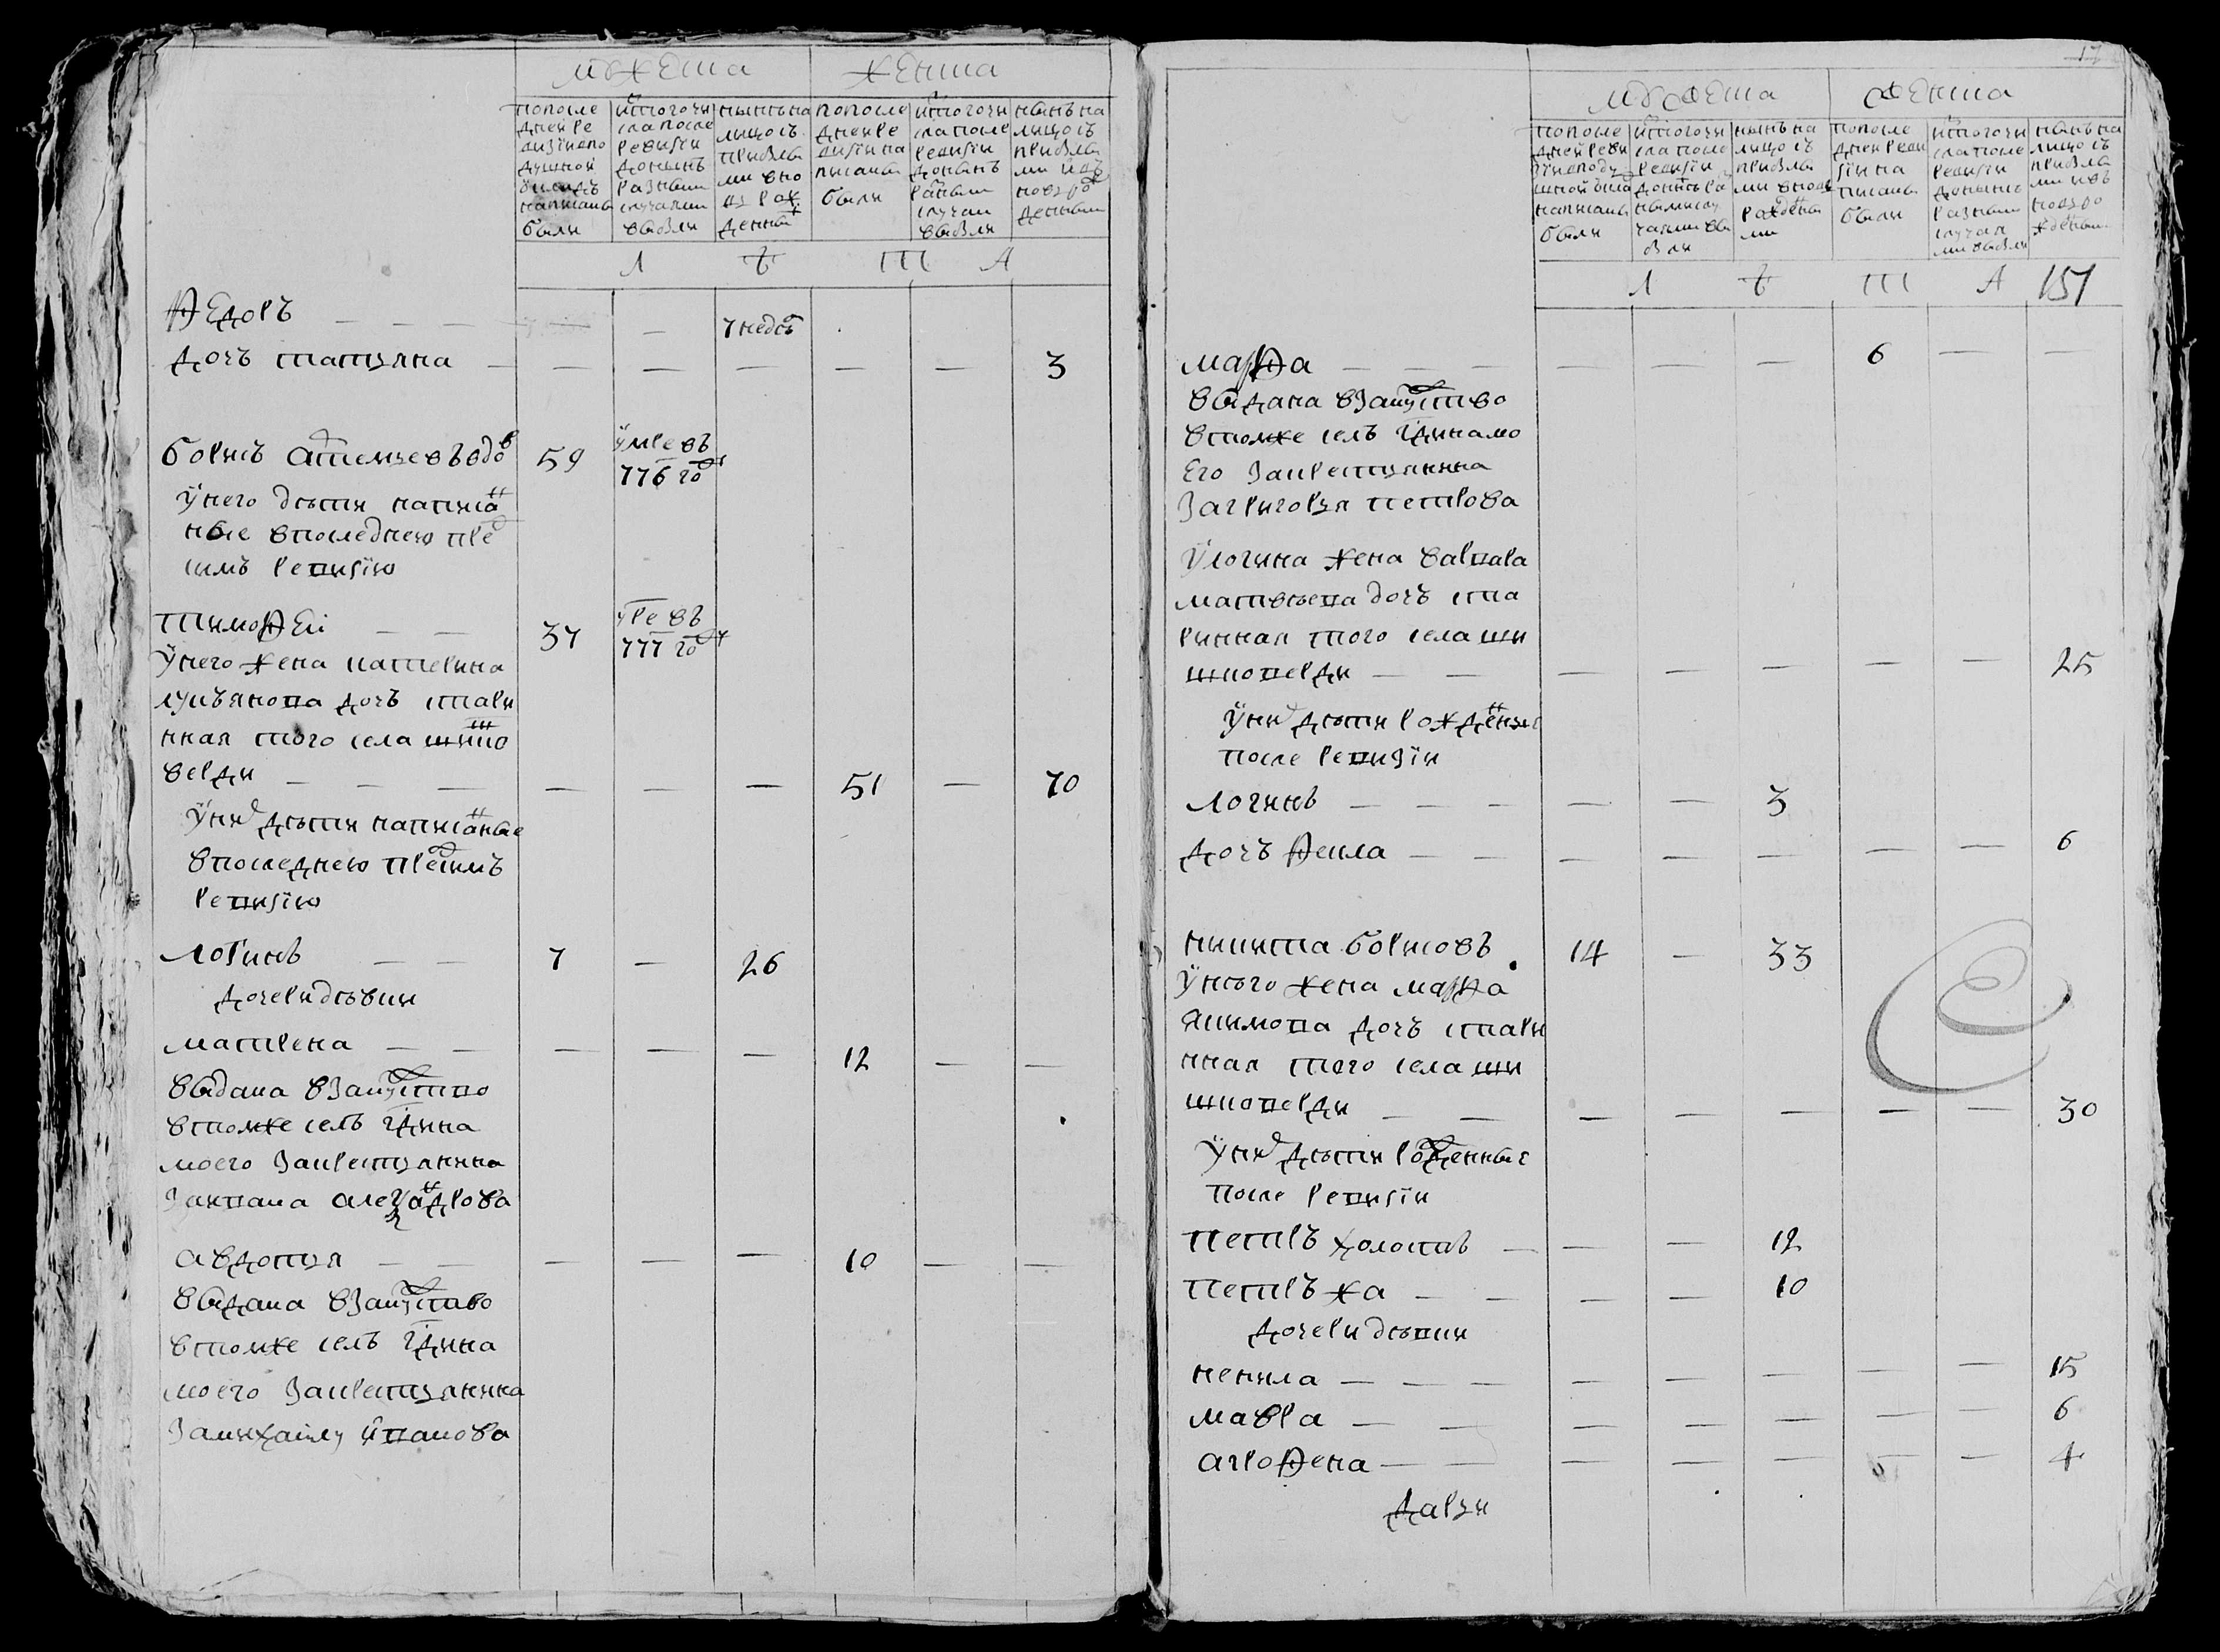 мужеска
женска
по после
дней ре
визiи по
душной
написаны
были
ис того чи
сла после
ревизiи
до нынѣ
разными
случаями
выбыли
нынѣ на
лицо съ
прибылы
ми вно
вь рож
денны
по после
дней ре
визiи на
писаны
были
ис того чи
сла после
ревизiи
до нынѣ
разными
случаи
выбыли
нынѣ на
лицо съ
прибылы
ми и въ
новь ро
жденными
Л Ѣ Т А
Ѳедоръ — — — — — 7 недѣ
дочь татьяна — — — — — — 3
борисъ артемьевъ вдов 59 умре въ
776 году
у него дети написа
ные в последнею пре
шлѣ ревизiю
тимоѲеi — — 37 умре въ
777 году
у него жена катерина
лукьянова дочь стари
нная того села шишко
верди — — — — — — 51 — 70
у них дѣти написаные
в последнею прешлѣ
ревизiю
логинъ — — 7 — 26
дочери дѣвки
матрена — — — — — 12 — —
выдана в замуство
в томже селѣ гдина
моего за крестьянина
за ивана алеѯандрова
авдотья — — — — — 10 — —
выдана в замуство
в томже селѣ гдина
моего за крестьянина
за михаилу иванова
17
мужеска
женска
по после
дней реви
зiи по ду
шной была
написаны
были
ис того чи
сла после
ревизiи
до нынѣ ра
зными слу
чаями вы
были
нынѣ на
лицо съ
прибылы
ми вновь
рожденны
ми
по после
дней реви
зiи на
писаны
были
ис того чи
сла после
ревизiи
до нынѣ
разными
случая
ми выбыли
нынѣ на
лицо съ
прибылы
ми и въ
новь ро
жденными
Л Ѣ Т А 151
марѲа — — — — — — 6 — —
выдана в замуство
в томже селѣ гдина мо
его за крестьянина
за григорья петрова
у логина жена варвара
матвѣева дочь ста
ринная того села ши
шковерди — — — — — — — 25
у них дѣти рожденые
после ревизiи
логинъ — — — — — 3
дочь Ѳекла — — — — — — — 6
никита борисовъ 14 — 33
у нѣго жена марѲа
якимова дочь стари
нная того села ши
шковерди — — — — — — — 30
у них дѣти рожденные
после ревизiи
петръ холостъ — — — 12
петръ жа — — — — 10
дочери дѣвки
ненила — — — — — — — — 15
мавра — — — — — — — 6
агроѲена — — — — — — — 4
дарьи